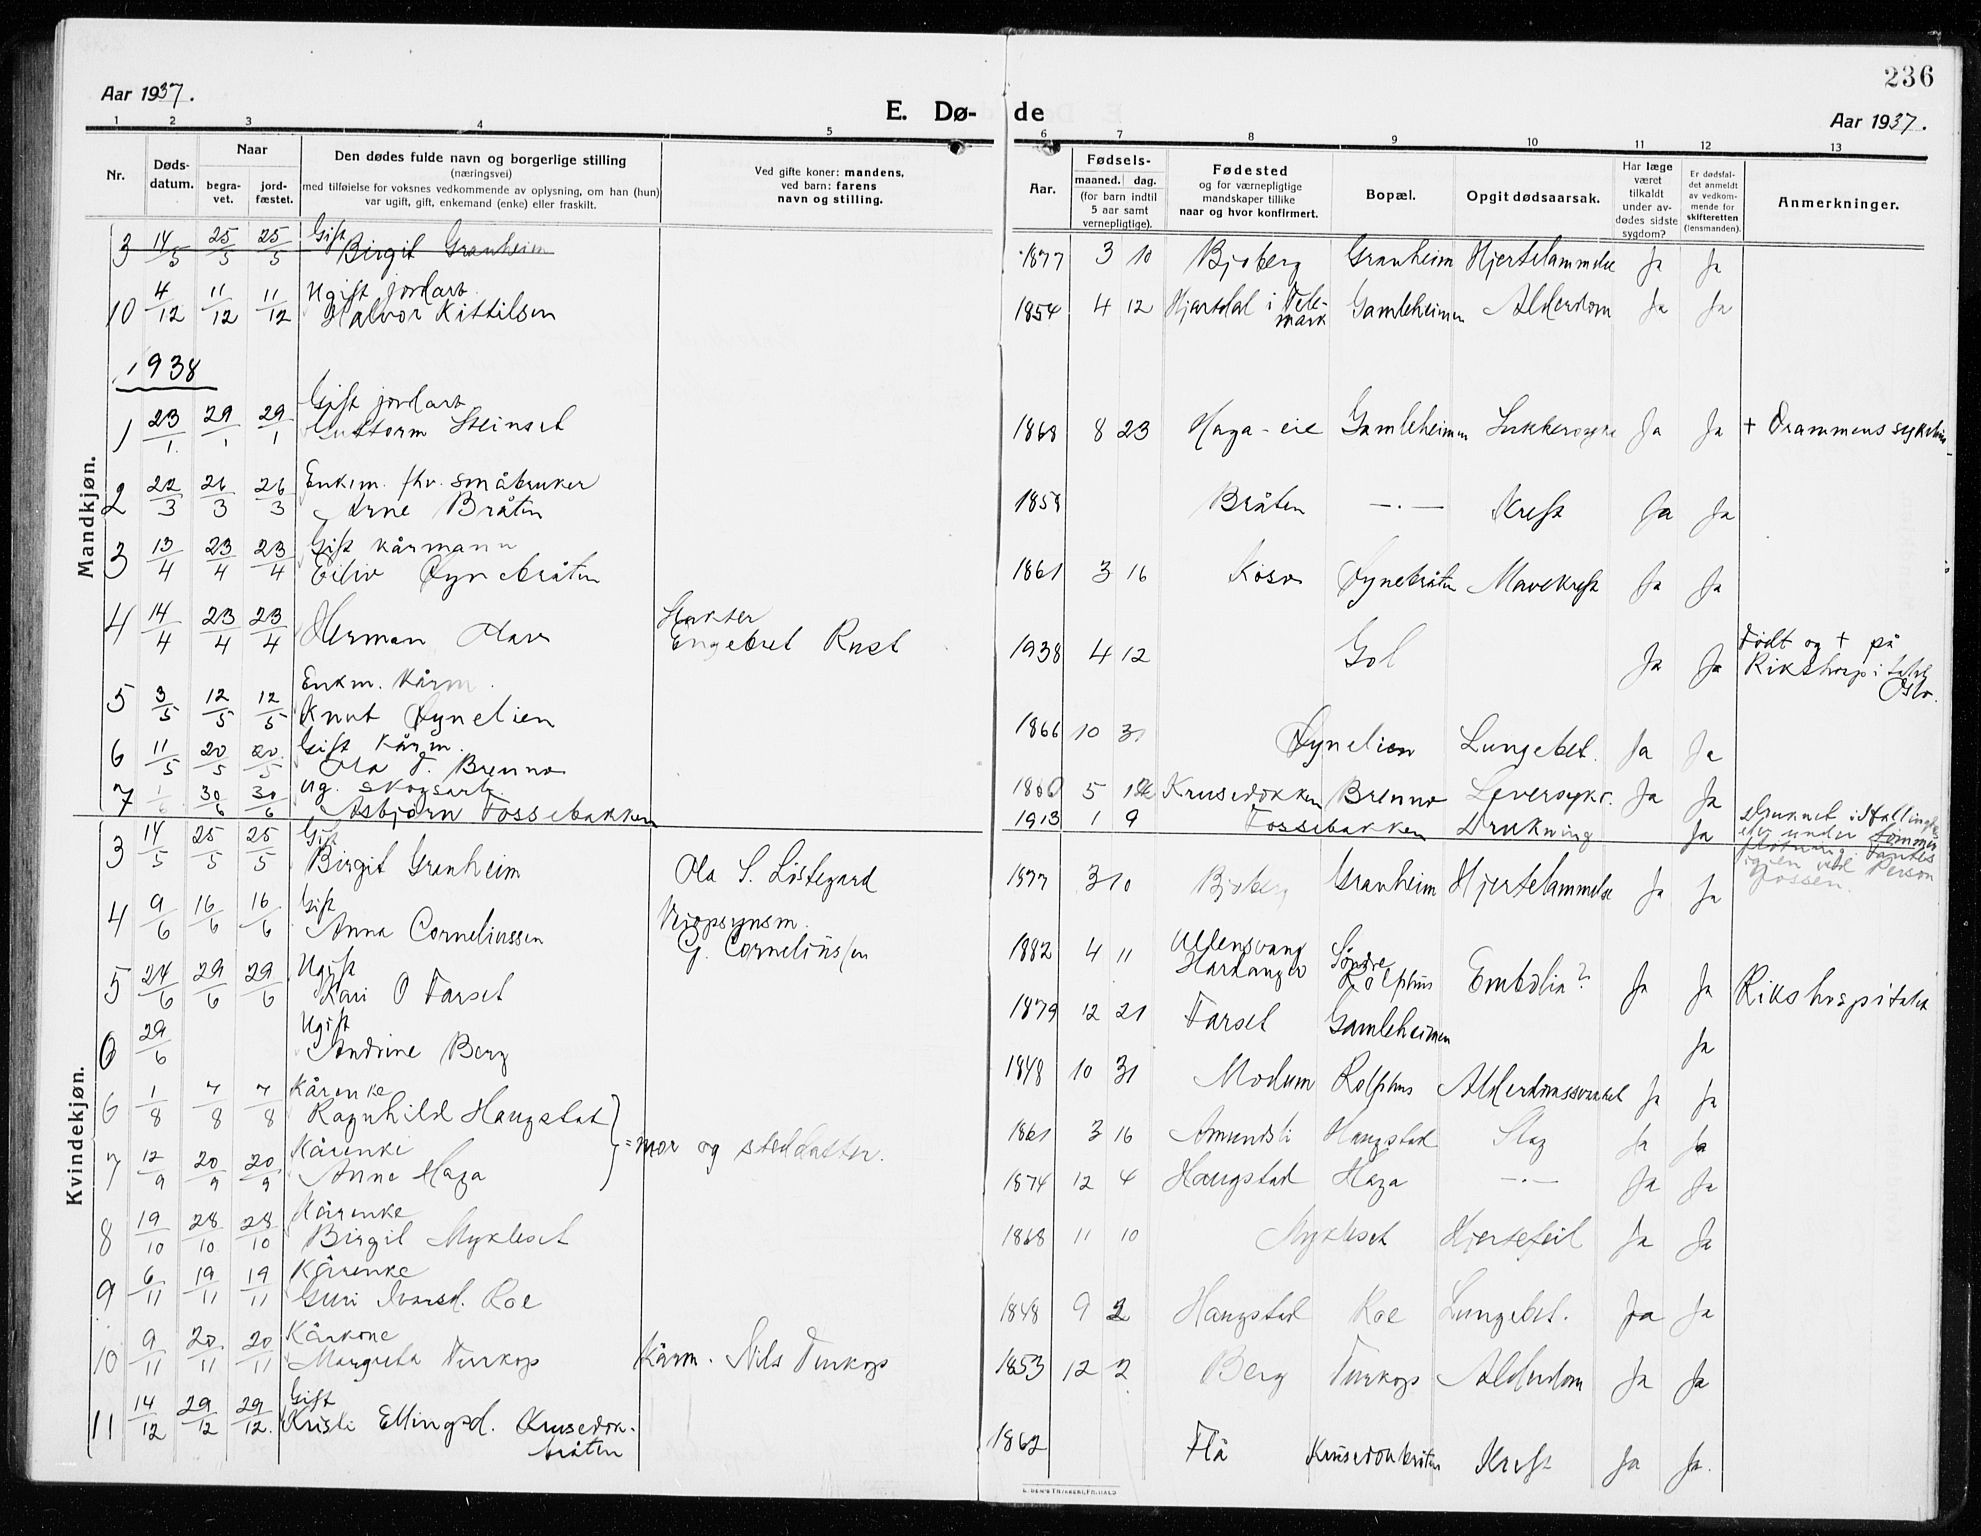 236
Aar 1937.
E. Dø-de
Aar 1937.
1 2 3 4 5 6 7 8 9 10 11 12 13
Nr.
Døds-
datum.
Naar
begra-
vet.
jord-
fæstet.
Den dødes fulde navn og borgerlige stilling
(næringsvei)
med tilføielse for voksnes vedkommende av oplysning, om han (hun)
var ugift, gift, enkemand (enke) eller fraskilt.
Ved gifte koner: mandens,
ved barn: farens
navn og stilling.
Aar.
Fødsels-
maaned. dag.
(for barn indtil
5 aar samt
vernepligtige).
Fødested
og for værnepligtige
mandskaper tillike
naar og hvor konfirmert.
Bopæl.
Opgit dødsaarsak.
Har læge
været
tilkaldt
under av-
dødes sidste
sygdom?
Er dødsfal-
det anmeldt
av vedkom-
mende for
skifteretten
(lensmanden).
Anmerkninger.
Mandkjøn.
Gift
3 14/5 25/5 25/5 Birgit Granheim 1877 3 10 Bjøberg Granheim Hjertelammelse Ja Ja
Ugift jordarb.
10 4/12 11/12 11/12 Halvor Kittilsen 1854 4 12 Hjartdal i Tele-
mark Gamleheimen Alderdom Ja Ja
1938
Gift jordarb
1 23/1 29/1 29/1 Guttorm Steinset 1868 8 23 Haga-eie Gamleheimen Sukkersyke Ja Ja + Drammens sykehus
Enkm. fhv. småbruker
2 22/3 26/3 26/3 Arne Bråten 1858 Bråten —·— Kreft Ja Ja
Gift kårmann
3 13/4 23/4 23/4 Eiliv Øynebråten 1861 3 16 Øynebråten Mavekreft Ja Ja
4 14/4 23/4 23/4 Herman Engebret Rust 1938 4 12 Gol Ja Ja Født og + på
Rikshospitalet
Oslo.
Enkm. Kårm.
5 3/5 12/5 12/5 Knut Øynelien 1866 10 31 Øynelien Lungebet. Ja Ja
Gift Kårm.
6 11/5 20/5 20/5 Ola T. Brenno 1860 5 Krusedokken Brenno Leversykd. Ja Ja
ug. skogsarb.
7 1/6 30/6 30/6 Asbjørn Fossebakken 1913 1 9 Fossebakken Drukning Ja
eller under tømmer
fløtning. Fantes
igjen ved Person
fossen.
Kvindekjøn.
Gift
3 14/5 25/5 25/5 Birgit Granheim Ola S. Løstegard 1877 3 10 Bjøberg Granheim Hjertelammelse Ja Ja
Gift
4 9/6 16/6 16/6 Anna Corneliussen Veiopsynsm.
G. Corneliussen 1882 4 11 Ullensvang
Hardanger Søndre
Rolphus Embolia? Ja Ja Rikshospitalet
Ugift
5 24/6 29/6 29/6 Kari O Tarset 1879 12 21 Tarset Gamleheimen Ja
Ugift
6 29/6 Andrine Berg 1848 10 31 Modum Rolphus Alderdomssvakhet Ja Ja
Kårenke
6 1/8 7/8 7/8 Ragnhild Haugstad 1861 3 16 Amundsli Haugstad Slag Ja Ja
= mor og steddatter.
Kårenke
7 12/9 20/9 20/9 Anne Haga 1874 12 4 Haugstad Haga —·— Ja Ja
Kårenke
8 19/10 28/10 28/10 Birgit Mykleset 1868 11 10 Mykleset Hjertefeil Ja Ja
Kårenke
9 6/11 19/11 19/11 Guri Ivarsd. Roe 1848 9 2 Haugstad Roe Lungebet. Ja Ja
Kårkone
10 9/11 20/11 20/11 Margreta Turkop Kårm. Nils Turkop 1853 12 2 Berg Turkop Alderdom Ja Ja
Gift
11 14/12 29/12 29/12 Kristi Ellingsd. Krusedok-
bråten 1862 Flå Krusedokbråten Kreft Ja Ja.